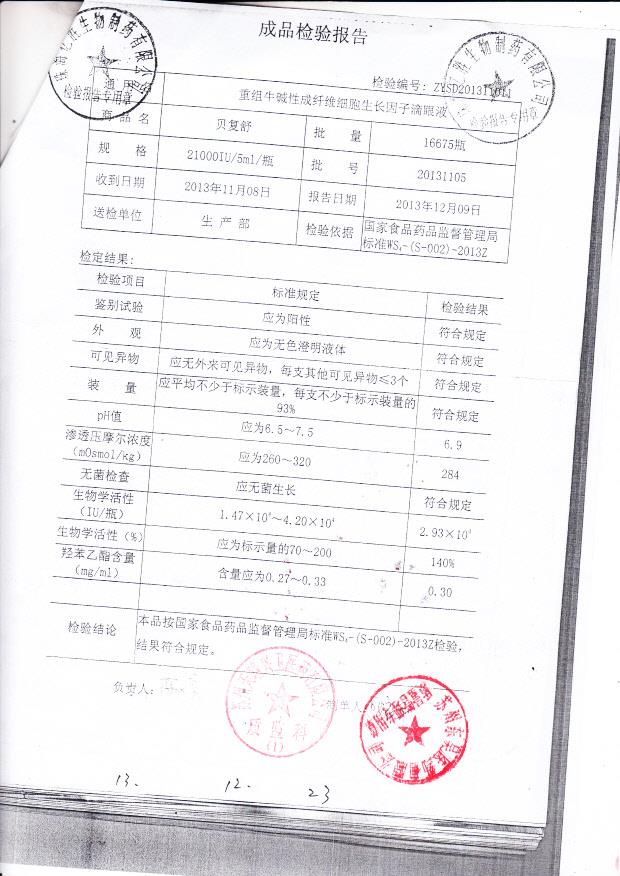 成品检验报告
检验编号: ZYSD20131101
通用 重组牛碱性成纤维细胞生长因子滴眼液
商品名 贝复舒 批量 16675瓶
规格 21000IU/5ml/瓶 批号 20131105
收到日期 2013年11月08日 报告日期 2013年12月09日
送检单位 生产部 检验依据 国家食品药品监督管理局
标准WS₄-(S-002)-2013Z
检定结果:
检验项目 标准规定 检验结果
鉴别试验 应为阳性 符合规定
外观 应为无色澄明液体 符合规定
可见异物 应无外来可见异物，每支其他可见异物≤3个 符合规定
装量 应平均不少于标示装量，每支不少于标示装量的
93% 符合规定
pH值 应为6.5～7.5 6.9
渗透压摩尔浓度
(mOsmol/kg) 应为260～320 284
无菌检查 应无菌生长 符合规定
生物学活性
(IU/瓶) 1.47×10⁴～4.20×10⁴ 2.93×10⁴
生物学活性(%) 应为标示量的70～200 140%
羟苯乙酯含量
(mg/ml) 含量应为0.27～0.33 0.30
检验结论 本品按国家食品药品监督管理局标准WS₄-(S-002)-2013Z检验，
结果符合规定。
负责人:
制单人
生物制药有限公司
检验报告专用章
生物制药有限公司
检验报告专用章
质监科
(1)
苏州东
医药有限公司
13. 12. 23